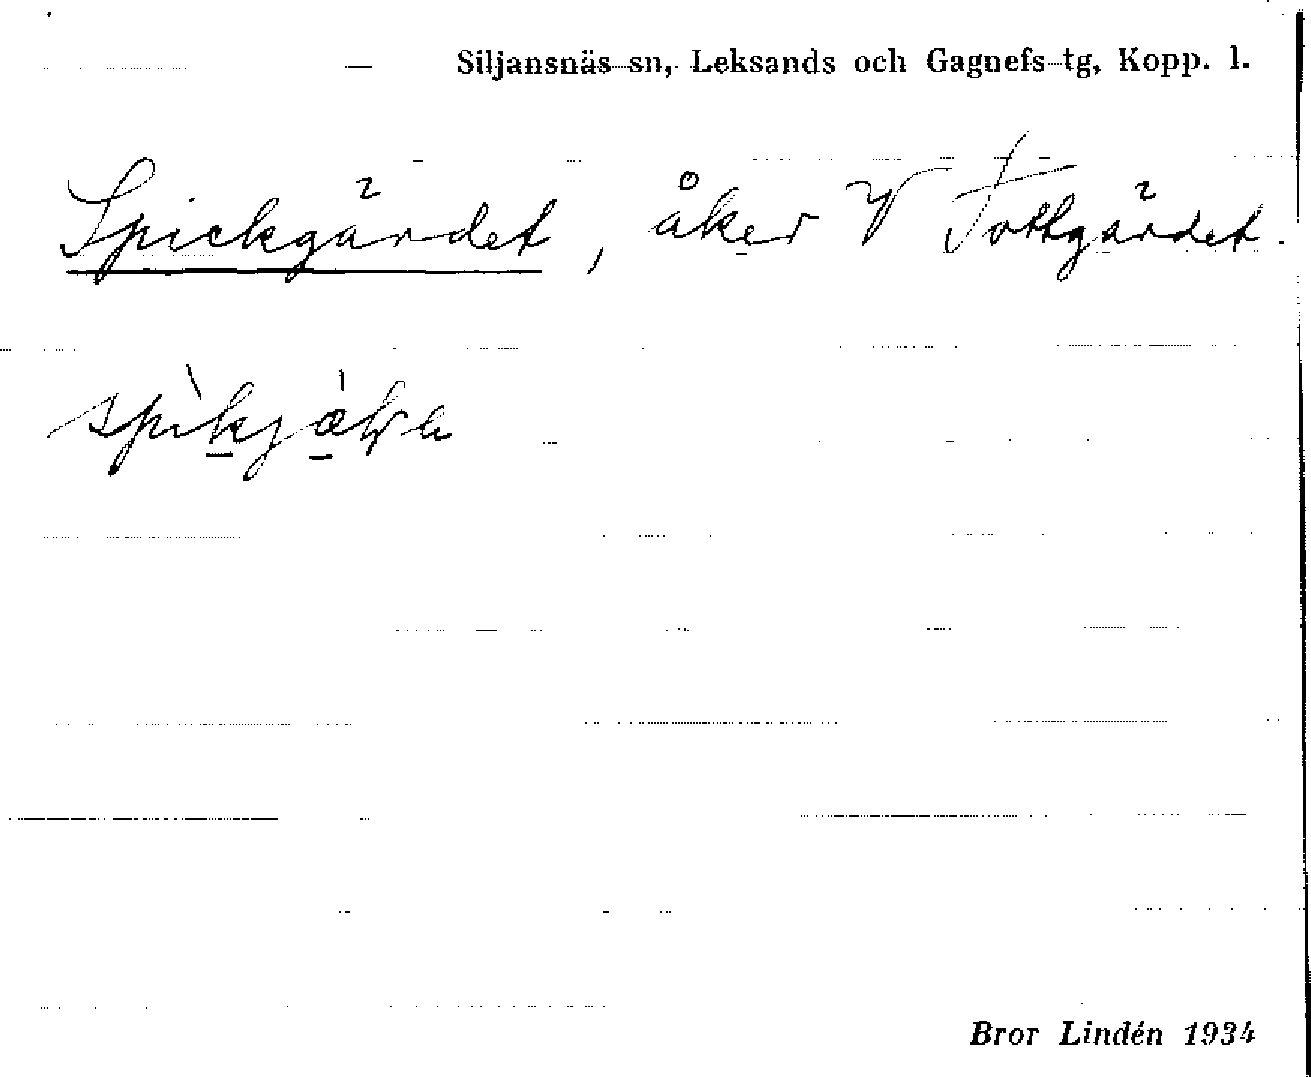 Siljansnäs sn, Leksands och Gagnefs tg, Kopp. l.
Spickgärdet, åker V Tottgärdet.
Bror Lindén 1934